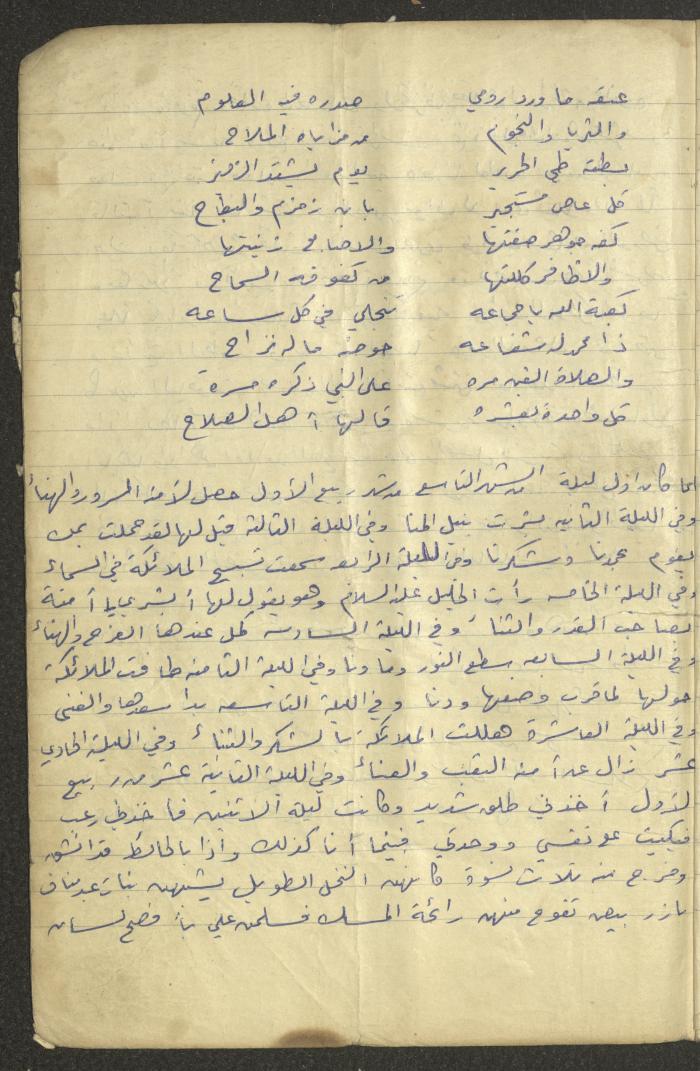 عنقه ما ورد رومي صدره فيه العلوم
والثريا والنجوم من مزاياه الملاح
بطنه طي الحرير يوم يشتد الزفير
كل عاص مستجير بابن زمزم والبطاح
كفه جوهر صفتها والاصابع زينتها
والاظافر كللتها من كفوفه السماح
كعبة الله يا جماعه تنجلي في كل ساعه
ذا محمد له شفاعه حوضه ما له نزاح
والصلاة الفين مره على النبي ذكره مسرة
كل واحدة بعشره قالها أهل الصلاح
لما كان اول ليلة من الشهر التاسع من شهر ربيع الأول حصل لآمنه السرور والهناء
وفي الليلة الثانيه بشرت بنيل المنا وفي الليلة الثالثة قيل لها لقد حملت بمن
يقوم بحمدنا وشكرنا وفي الليلة الرابعه سمعت تسبيح الملائكة في السماء
وفي الليلة الخامسه رأت الخليل عليه السلام وهو يقول لها أبشري يا أمنة
بصاحب القدر والثناء وفي الليلة السادسه كمل عندها الفرح والهناء
وفي الليلة السابعه سطع النور وما ونا وفي الليلة الثامنه طافت الملائكة
حولها لما قرب وضعها ودنا وفي الليلة التاسعه بدا سعدها والغنى
وفي الليلة العاشرة هللت الملائكة بالشكر والثناء وفي الليلة الحادي
عشر زال عن أمنه التعب والعناء وفي الليلة الثانية عشر من ربيع
الأول أخذني طلق شديد وكانت ليلة الاثنين فأخذني رعب
فبكيت على نفسي ووحدتي فبينما أنا كذلك واذا بالحائط قد انشق
وخرج منه ثلاث نسوة كأنهن النخل الطويل يشبهن بنات عبد مناف
بازر بيض تفوح منهن رائحة المسك فسلمن علي بأفصح لسان